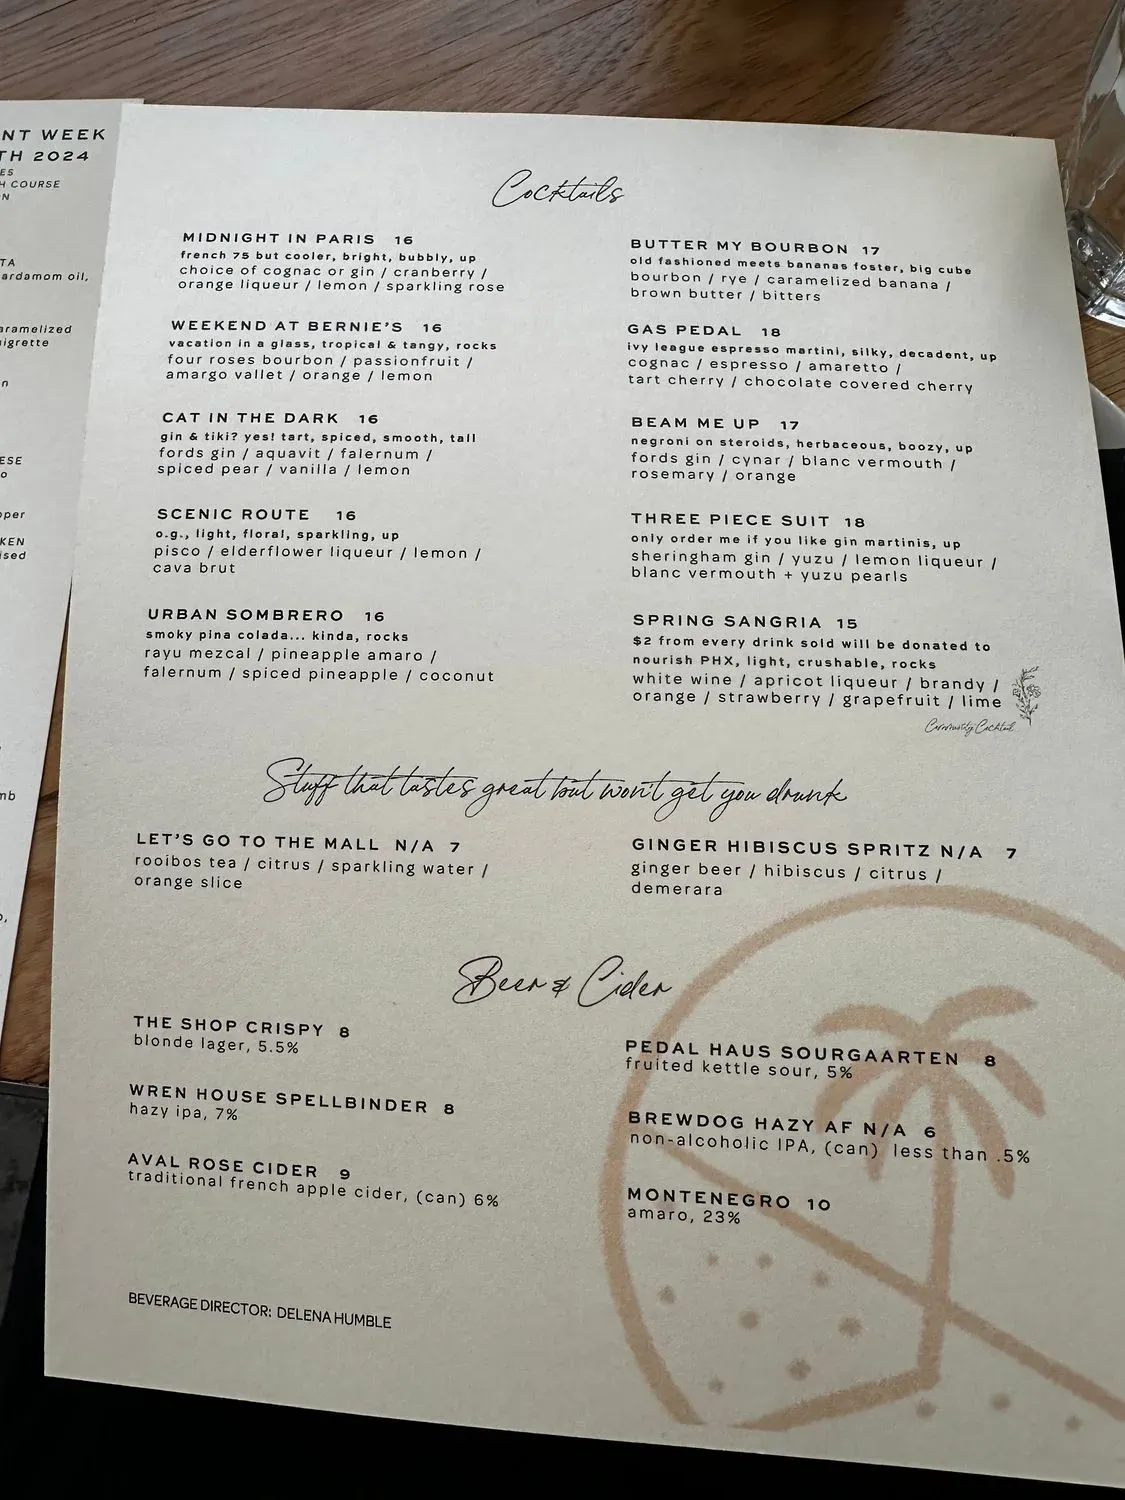 NT WEEK
TH 2024
ES
H COURSE
N
TA
ardamom oil,
aramelized
aigrette
n
ESE
o
pper
KEN
ised
mb
Cocktails
MIDNIGHT IN PARIS 16
french 75 but cooler, bright, bubbly, up
choice of cognac or gin / cranberry /
orange liqueur / lemon / sparkling rose
WEEKEND AT BERNIE'S 16
vacation in a glass, tropical & tangy, rocks
four roses bourbon / passionfruit /
amargo vallet / orange / lemon
CAT IN THE DARK 16
gin & tiki? yes! tart, spiced, smooth, tall
fords gin / aquavit / falernum /
spiced pear / vanilla / lemon
SCENIC ROUTE 16
o.g., light, floral, sparkling, up
pisco / elderflower liqueur / lemon /
cava brut
URBAN SOMBRERO 16
smoky pina colada... kinda, rocks
rayu mezcal / pineapple amaro /
falernum / spiced pineapple / coconut
BUTTER MY BOURBON 17
old fashioned meets bananas foster, big cube
bourbon / rye / caramelized banana /
brown butter / bitters
GAS PEDAL 18
ivy league espresso martini, silky, decadent, up
cognac / espresso / amaretto /
tart cherry / chocolate covered cherry
BEAM ME UP 17
negroni on steroids, herbaceous, boozy, up
fords gin / cynar / blanc vermouth /
rosemary / orange
THREE PIECE SUIT 18
only order me if you like gin martinis, up
sheringham gin / yuzu / lemon liqueur /
blanc vermouth + yuzu pearls
SPRING SANGRIA 15
$2 from every drink sold will be donated to
nourish PHX, light, crushable, rocks
white wine / apricot liqueur / brandy /
orange / strawberry / grapefruit / lime
Community Cocktail
Stuff that tastes great but won't get you drunk
LET'S GO TO THE MALL N/A 7
rooibos tea / citrus / sparkling water /
orange slice
GINGER HIBISCUS SPRITZ N/A 7
ginger beer / hibiscus / citrus /
demerara
Beer & Cider
THE SHOP CRISPY 8
blonde lager, 5.5%
WREN HOUSE SPELLBINDER 8
hazy ipa, 7%
AVAL ROSE CIDER 9
traditional french apple cider, (can) 6%
PEDAL HAUS SOURGAARTEN 8
fruited kettle sour, 5%
BREWDOG HAZY AF N/A 6
non-alcoholic IPA, (can) less than .5%
MONTENEGRO 10
amaro, 23%
BEVERAGE DIRECTOR: DELENA HUMBLE